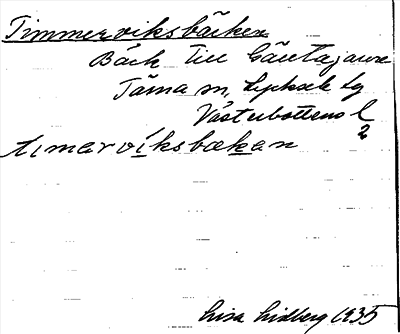 Timmerviksbäcken
Bäck till Gäutajaure
Tärna sn, Lycksele lg
Västerbottens l
2
tımarvíksbækan
Lisa Lidberg 1935